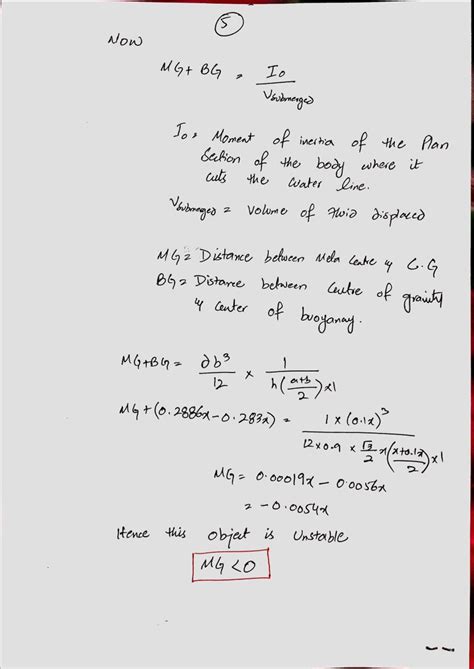 5
Now
MG + BG = I₀ / Vsubmerged
I₀ = Moment of inertia of the Plan
Section of the body where it
cuts the water line.
Vsubmerged = Volume of fluid displaced
MG = Distance between Meta Centre & C.G
BG = Distance between Centre of gravity
& Center of buoyancy.
MG+BG = ∂b³/12 × 1/(h(a+b/2)×1)
MG + (0.2886x - 0.283x) = 1×(0.1x)³/(12×0.9 × √3/2 x(x+0.1x/2)×1)
MG = 0.00019x - 0.0056x
= -0.0054x
Hence this object is Unstable
MG < 0